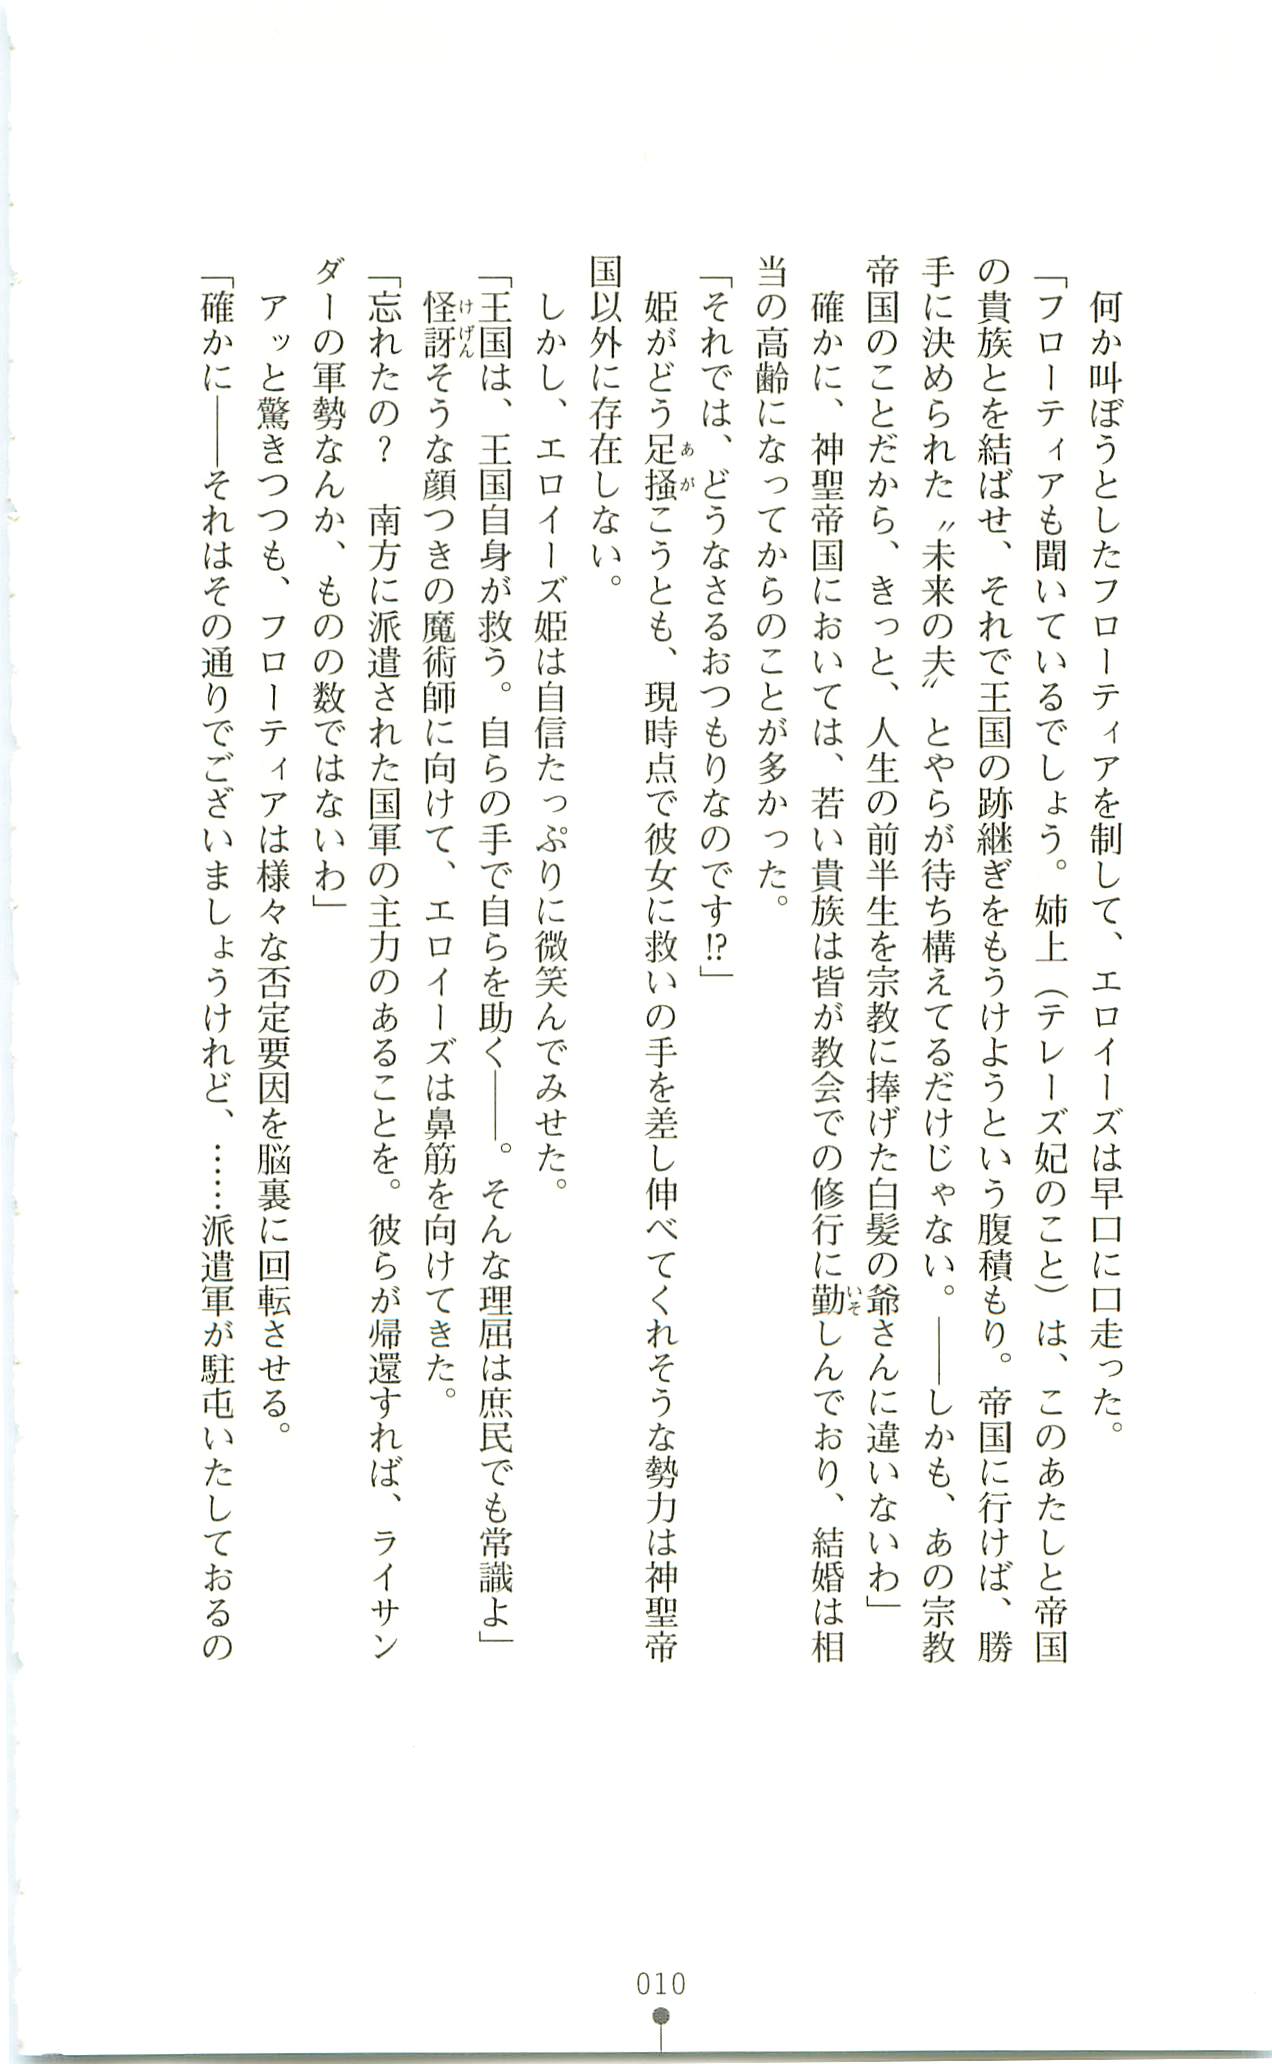 何か叫ぼうとしたフローティアを制して、エロイーズは早口に口走った。
「フローティアも聞いているでしょう。姉上（テレーズ妃のこと）は、このあたしと帝国
の貴族とを結ばせ、それで王国の跡継ぎをもうけようという腹積もり。帝国に行けば、勝
手に決められた〝未来の夫〟とやらが待ち構えてるだけじゃない。――しかも、あの宗教
帝国のことだから、きっと、人生の前半生を宗教に捧げた白髪の爺さんに違いないわ」
確かに、神聖帝国においては、若い貴族は皆が教会での修行に勤しんでおり、結婚は相
いそ
当の高齢になってからのことが多かった。
「それでは、どうなさるおつもりなのです!?」
姫がどう足掻こうとも、現時点で彼女に救いの手を差し伸べてくれそうな勢力は神聖帝
あが
国以外に存在しない。
しかし、エロイーズ姫は自信たっぷりに微笑んでみせた。
「王国は、王国自身が救う。自らの手で自らを助く――。そんな理屈は庶民でも常識よ」
怪訝そうな顔つきの魔術師に向けて、エロイーズは鼻筋を向けてきた。
けげん
「忘れたの？　南方に派遣された国軍の主力のあることを。彼らが帰還すれば、ライサン
ダーの軍勢なんか、ものの数ではないわ」
アッと驚きつつも、フローティアは様々な否定要因を脳裏に回転させる。
「確かに――それはその通りでございましょうけれど、……派遣軍が駐屯いたしておるの
010